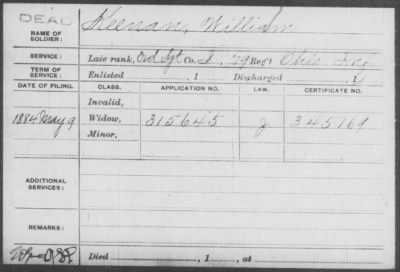 DEAD
NAME OF SOLDIER: Keenan, William
SERVICE: Late rank, Ord Sgt Co. I, 79 Reg't Ohio Inf
TERM OF SERVICE: Enlisted , 1 Discharged , 1
DATE OF FILING. CLASS. APPLICATION NO. LAW. CERTIFICATE NO.
Invalid,
1884 May 9 Widow, 315645 J 345169
Minor,
ADDITIONAL SERVICES:
REMARKS:
Died , 1 , at